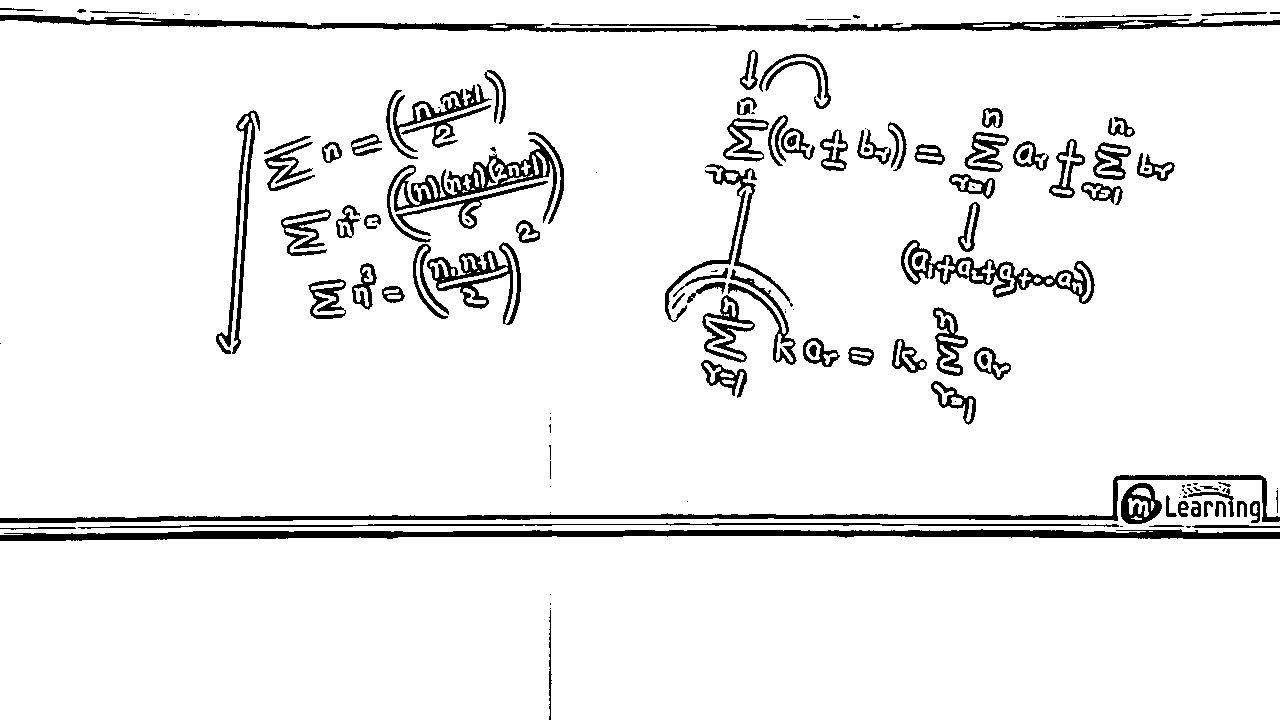 ∑ n = (n.n+1 / 2)
∑ n² = ((n)(n+1)(2n+1) / 6)
∑ n³ = (n.n+1 / 2)²
n ∑ r=1 (aᵣ ± bᵣ) = n ∑ r=1 aᵣ ± n. ∑ r=1 bᵣ
(a₁+a₂+a₃+..aₙ)
n ∑ r=1 k aᵣ = k. n ∑ r=1 aᵣ
m Learning